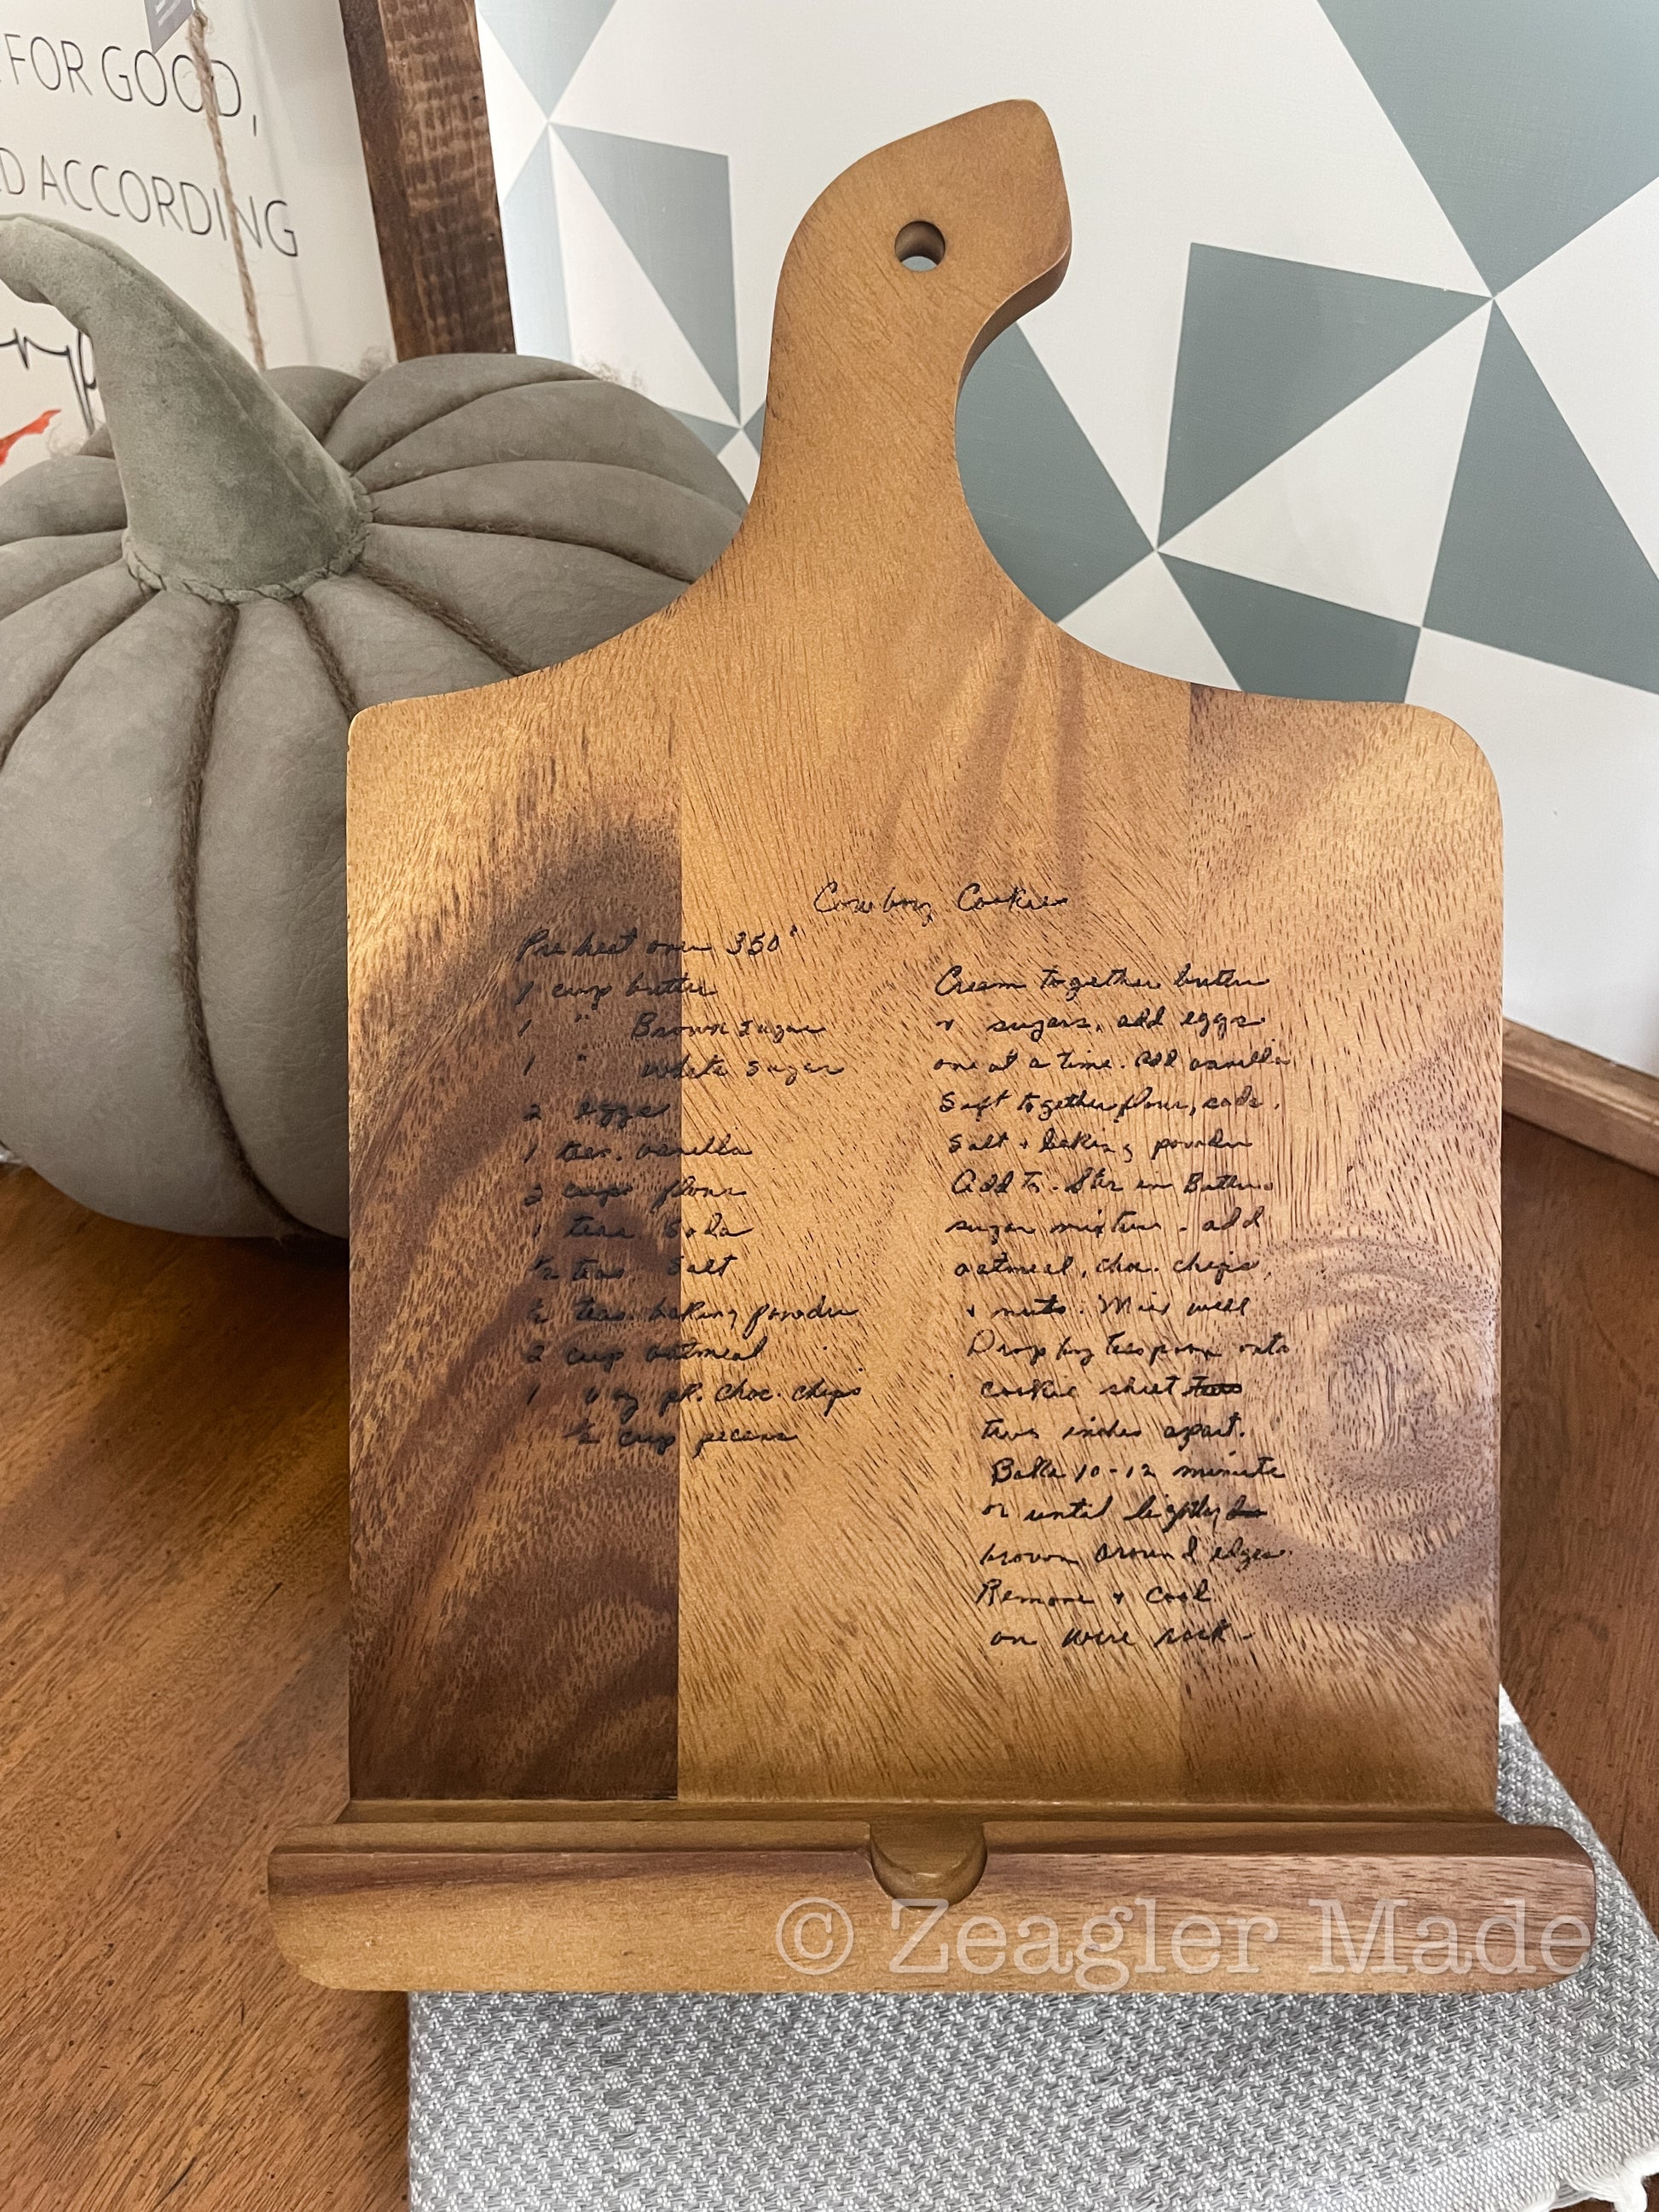 FOR GOOD,
ACCORDING
Cowboy Cookies
Pre heat oven 350°
1 cup butter
1 " Brown Sugar
1 " White Sugar
2 eggs
1 teas. vanilla
2 cups flour
1 teas Soda
1/2 teas. Salt
1/2 teas. baking powder
2 cup oatmeal
1 6 oz pk. choc. chips
1/2 cup pecans
Cream together butter
+ sugars, add eggs
one at a time. Add vanilla
Sift together flour, soda,
Salt + baking powder
Add to. Stir in Butter
sugar mixture - add
oatmeal, choc. chips
+ nuts. Mix well
Drop by teaspoon onto
cookie sheet
two inches apart.
Bake 10-12 minute
or until lightly
brown around edges
Remove + Cool
on wire rack-
© Zeagler Made